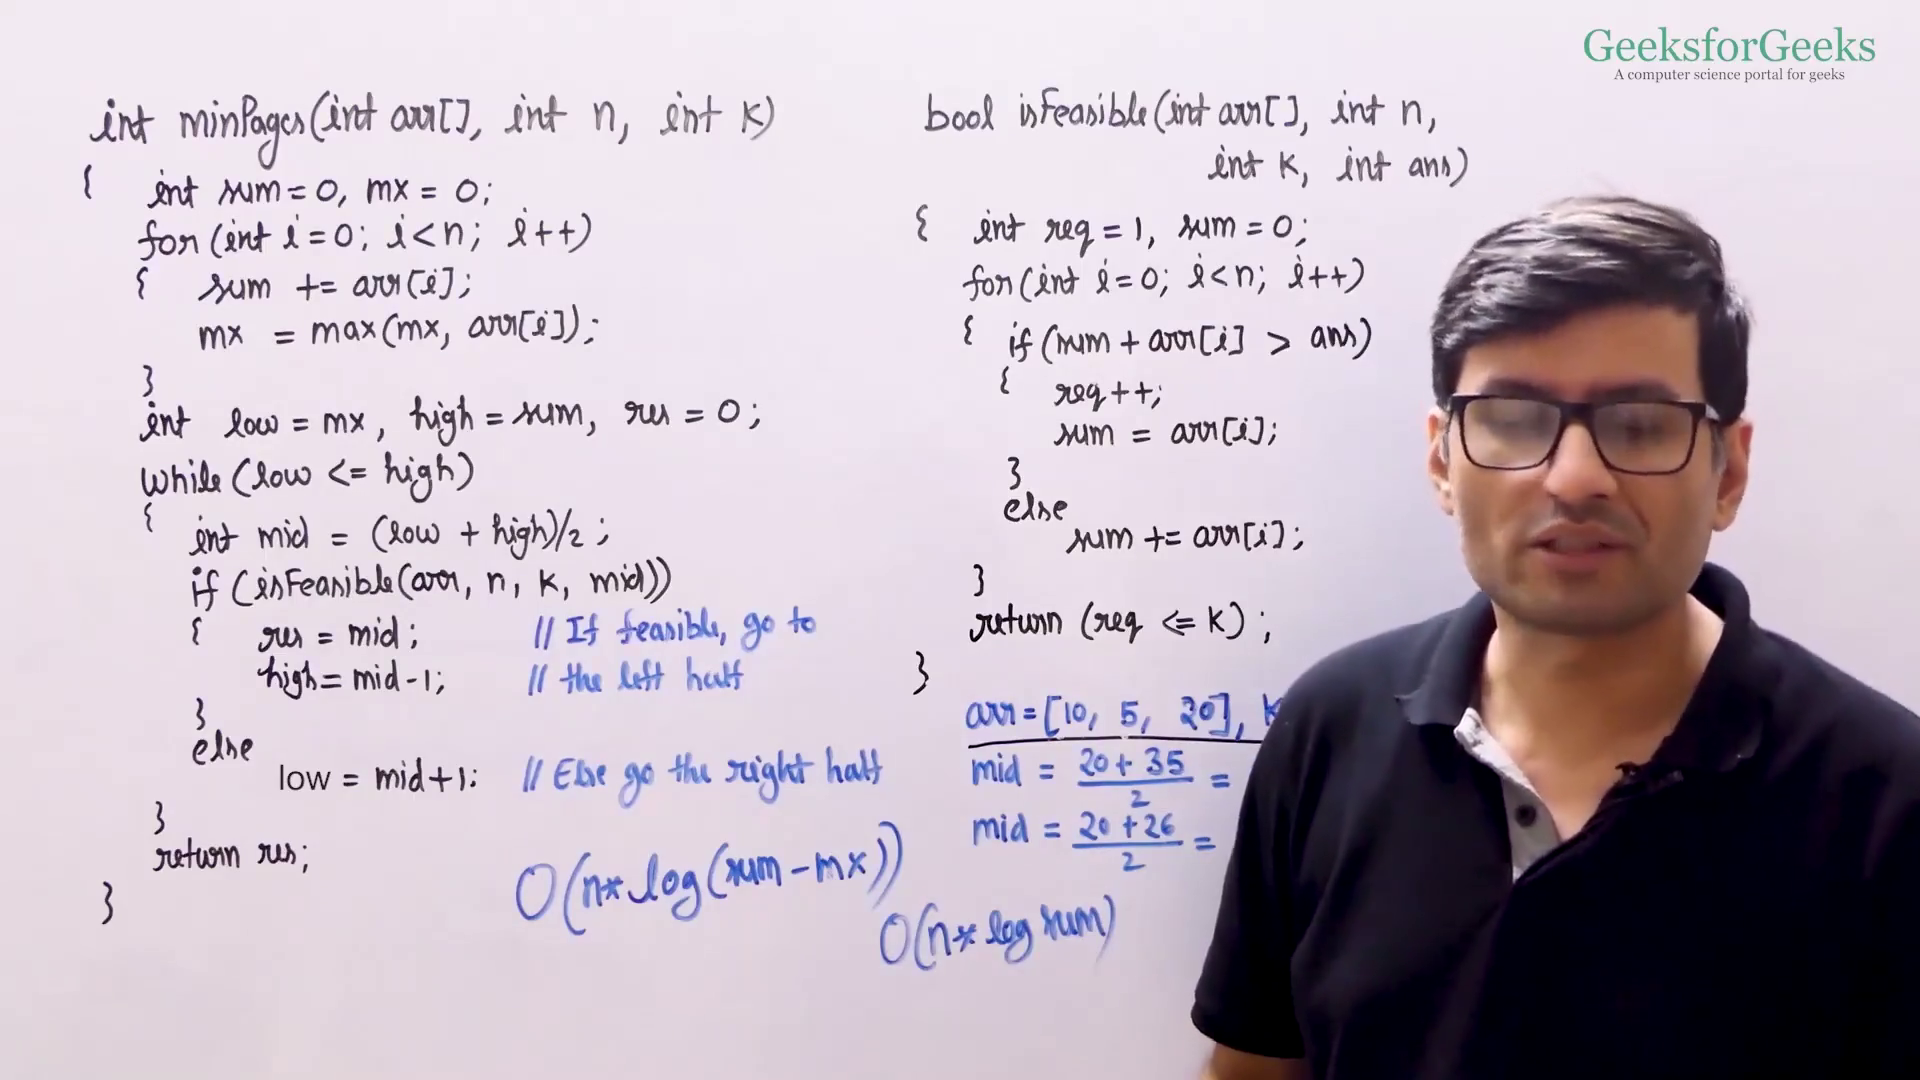 GeeksforGeeks
A computer science portal for geeks
int minPages(int arr[], int n, int k)
{ int sum = 0, mx = 0;
for (int i = 0; i < n; i++)
{ sum += arr[i];
mx = max(mx, arr[i]);
}
int low = mx, high = sum, res = 0;
while (low <= high)
{
int mid = (low + high)/2;
if (isFeasible(arr, n, k, mid))
{ res = mid; // If feasible, go to
high = mid-1; // the left half
}
else
low = mid+1; // Else go the right half
}
return res;
}
O(n* log(sum - mx))
O(n* log sum)
bool isFeasible(int arr[], int n,
int k, int ans)
{ int req = 1, sum = 0;
for(int i = 0; i < n; i++)
{ if (sum + arr[i] > ans)
{ req++;
sum = arr[i];
}
else
sum += arr[i];
}
return (req <= k);
}
arr = [10, 5, 20], k
mid = 20 + 35 / 2 =
mid = 20 + 26 / 2 =